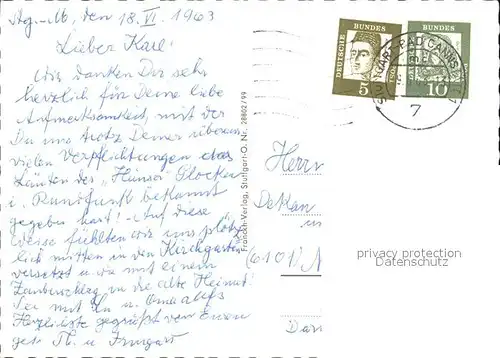 Stg.-M, den 18.VI. 1963
Lieber Karl!
Wir danken Dir sehr
herzlich für Deine liebe
Aufmerksamkeit, mit der
Du uns trotz Deiner überaus
vielen Verpflichtungen das
Läuten der "Heinser" Glocken
i. Rundfunk bekannt
gegeben hast! Auf diese
Weise fühlten wir uns plötz-
lich mitten in den Kirchgarten
versetzt u. wie mit einem
Zauberschlag in die alte Heimat!
Sei mit u. alles
Herzlichste gegrüßt von Euren
get. Th. u. Irmgart
Franckh-Verlag, Stuttgart-O. Nr. 28802/99
DEUTSCHE BUNDES
5
BUNDES
10
STUTTGART-BAD CANNSTATT
7
Herrn
Dekan
(6101)
Dar
privacy protection
Datenschutz